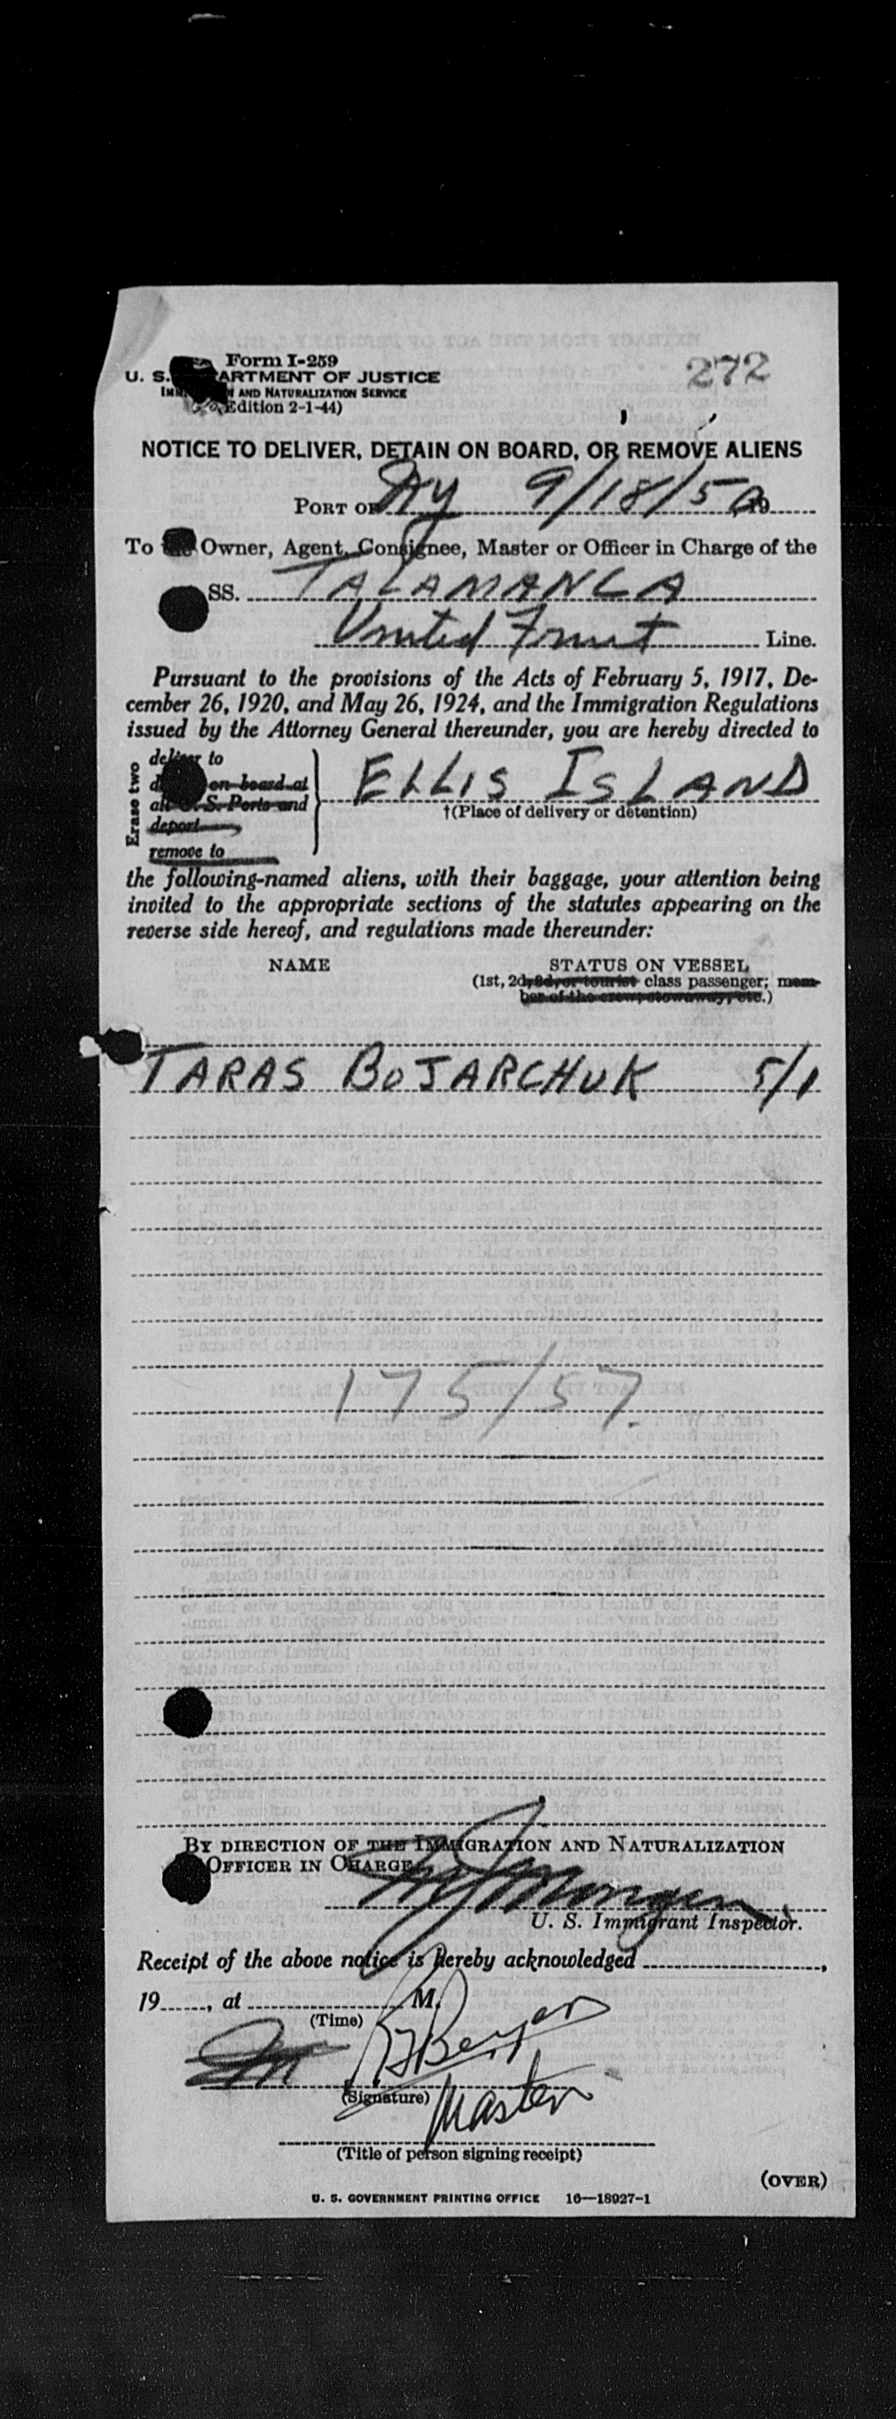 Form I-259
272
U. S. DEPARTMENT OF JUSTICE
IMMIGRATION AND NATURALIZATION SERVICE
(Edition 2-1-44)
NOTICE TO DELIVER, DETAIN ON BOARD, OR REMOVE ALIENS
PORT OF NY 9/18/50 19
To the Owner, Agent, Consignee, Master or Officer in Charge of the
SS. TALAMANCA
United Fruit Line.
Pursuant to the provisions of the Acts of February 5, 1917, De-
cember 26, 1920, and May 26, 1924, and the Immigration Regulations
issued by the Attorney General thereunder, you are hereby directed to
Erase two
deliver to
detain on board at
all U. S. Ports and
deport
remove to
ELLIS ISLAND
†(Place of delivery or detention)
the following-named aliens, with their baggage, your attention being
invited to the appropriate sections of the statutes appearing on the
reverse side hereof, and regulations made thereunder:
NAME STATUS ON VESSEL
(1st, 2d, 3d, or tourist class passenger; mem-
ber of the crew, stowaway, etc.)
TARAS BOJARCHUK 5/1
175/57
BY DIRECTION OF THE IMMIGRATION AND NATURALIZATION
OFFICER IN CHARGE
U. S. Immigrant Inspector.
Receipt of the above notice is hereby acknowledged
19, at M.
(Time)
(Signature)
Master
(Title of person signing receipt)
(OVER)
U. S. GOVERNMENT PRINTING OFFICE 16—18927-1